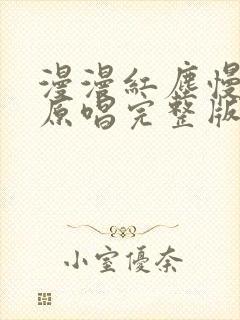 漫漫紅塵慢
原唱完整版
小室優奈